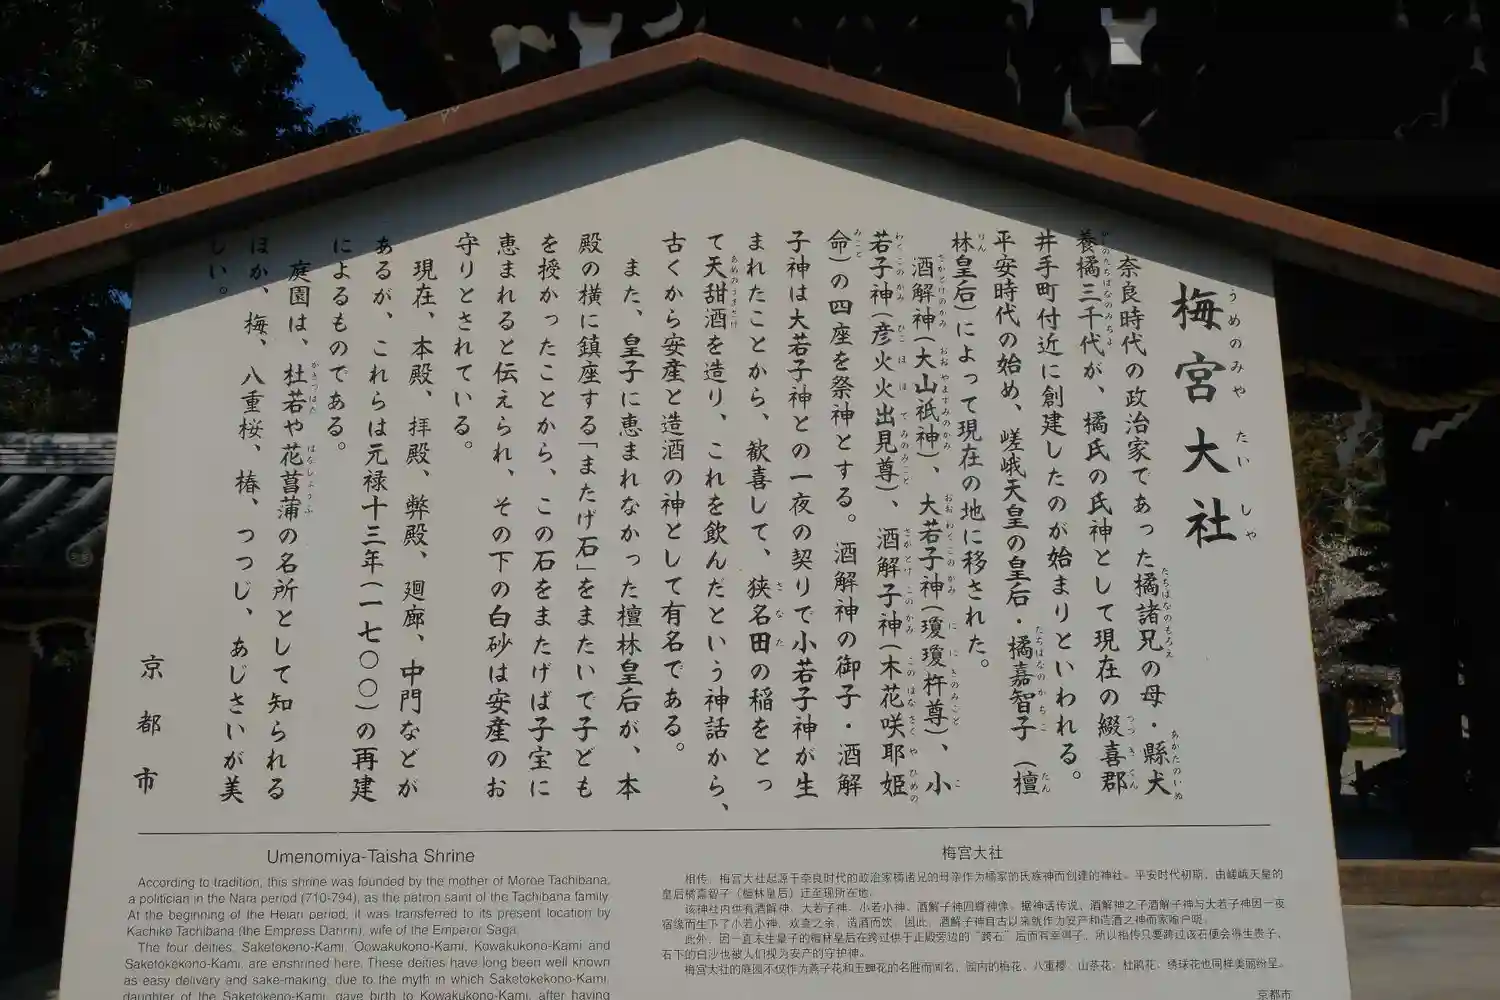 梅宮大社
うめのみやたいしゃ
奈良時代の政治家であった橘諸兄の母・縣犬
養橘三千代が、橘氏の氏神として現在の綴喜郡
井手町付近に創建したのが始まりといわれる。
平安時代の始め、嵯峨天皇の皇后・橘嘉智子（檀
林皇后）によって現在の地に移された。
酒解神（大山祇神）、大若子神（瓊瓊杵尊）、小
若子神（彦火火出見尊）、酒解子神（木花咲耶姫
命）の四座を祭神とする。酒解神の御子・酒解
子神は大若子神との一夜の契りで小若子神が生
まれたことから、歓喜して、狭名田の稲をとっ
て天甜酒を造り、これを飲んだという神話から、
古くから安産と造酒の神として有名である。
また、皇子に恵まれなかった檀林皇后が、本
殿の横に鎮座する「またげ石」をまたいで子ども
を授かったことから、この石をまたげば子宝に
恵まれると伝えられ、その下の白砂は安産のお
守りとされている。
現在、本殿、拝殿、弊殿、廻廊、中門などが
あるが、これらは元禄十三年（一七〇〇）の再建
によるものである。
庭園は、杜若や花菖蒲の名所として知られる
ほか、梅、八重桜、椿、つつじ、あじさいが美
しい。
京都市
Umenomiya-Taisha Shrine
According to tradition, this shrine was founded by the mother of Moroe Tachibana,
a politician in the Nara period (710-794), as the patron saint of the Tachibana family.
At the beginning of the Heian period, it was transferred to its present location by
Kachiko Tachibana (the Empress Danrin), wife of the Emperor Saga.
The four deities, Saketokeno-Kami, Oowakukono-Kami, Kowakukono-Kami and
Saketokekono-Kami, are enshrined here. These deities have long been well known
as easy delivery and sake-making, due to the myth in which Saketokekono-Kami,
daughter of the Saketokeno-Kami, gave birth to Kowakukono-Kami, after having
梅宫大社
相传，梅宫大社起源于奈良时代的政治家橘诸兄的母亲作为橘家的氏族神而创建的神社。平安时代初期，由嵯峨天皇的
皇后橘嘉智子（檀林皇后）迁至现所在地。
该神社内供有酒解神、大若子神、小若小神、酒解子神四尊神像。据神话传说，酒解神之子酒解子神与大若子神因一夜
宿缘而生下了小若子神，欢喜之余，造酒而饮。因此，酒解子神自古以来就作为安产和造酒之神而家喻户晓。
此外，因一直未生皇子的檀林皇后在跨过供于正殿旁边的“跨石”后而有幸得子，所以相传只要跨过该石便会得生贵子，
石下的白沙也被人们视为安产的守护神。
梅宫大社的庭园不仅作为燕子花和玉蝉花的名胜而闻名，园内的梅花、八重樱、山茶花、杜鹃花、绣球花也同样美丽纷呈。
京都市